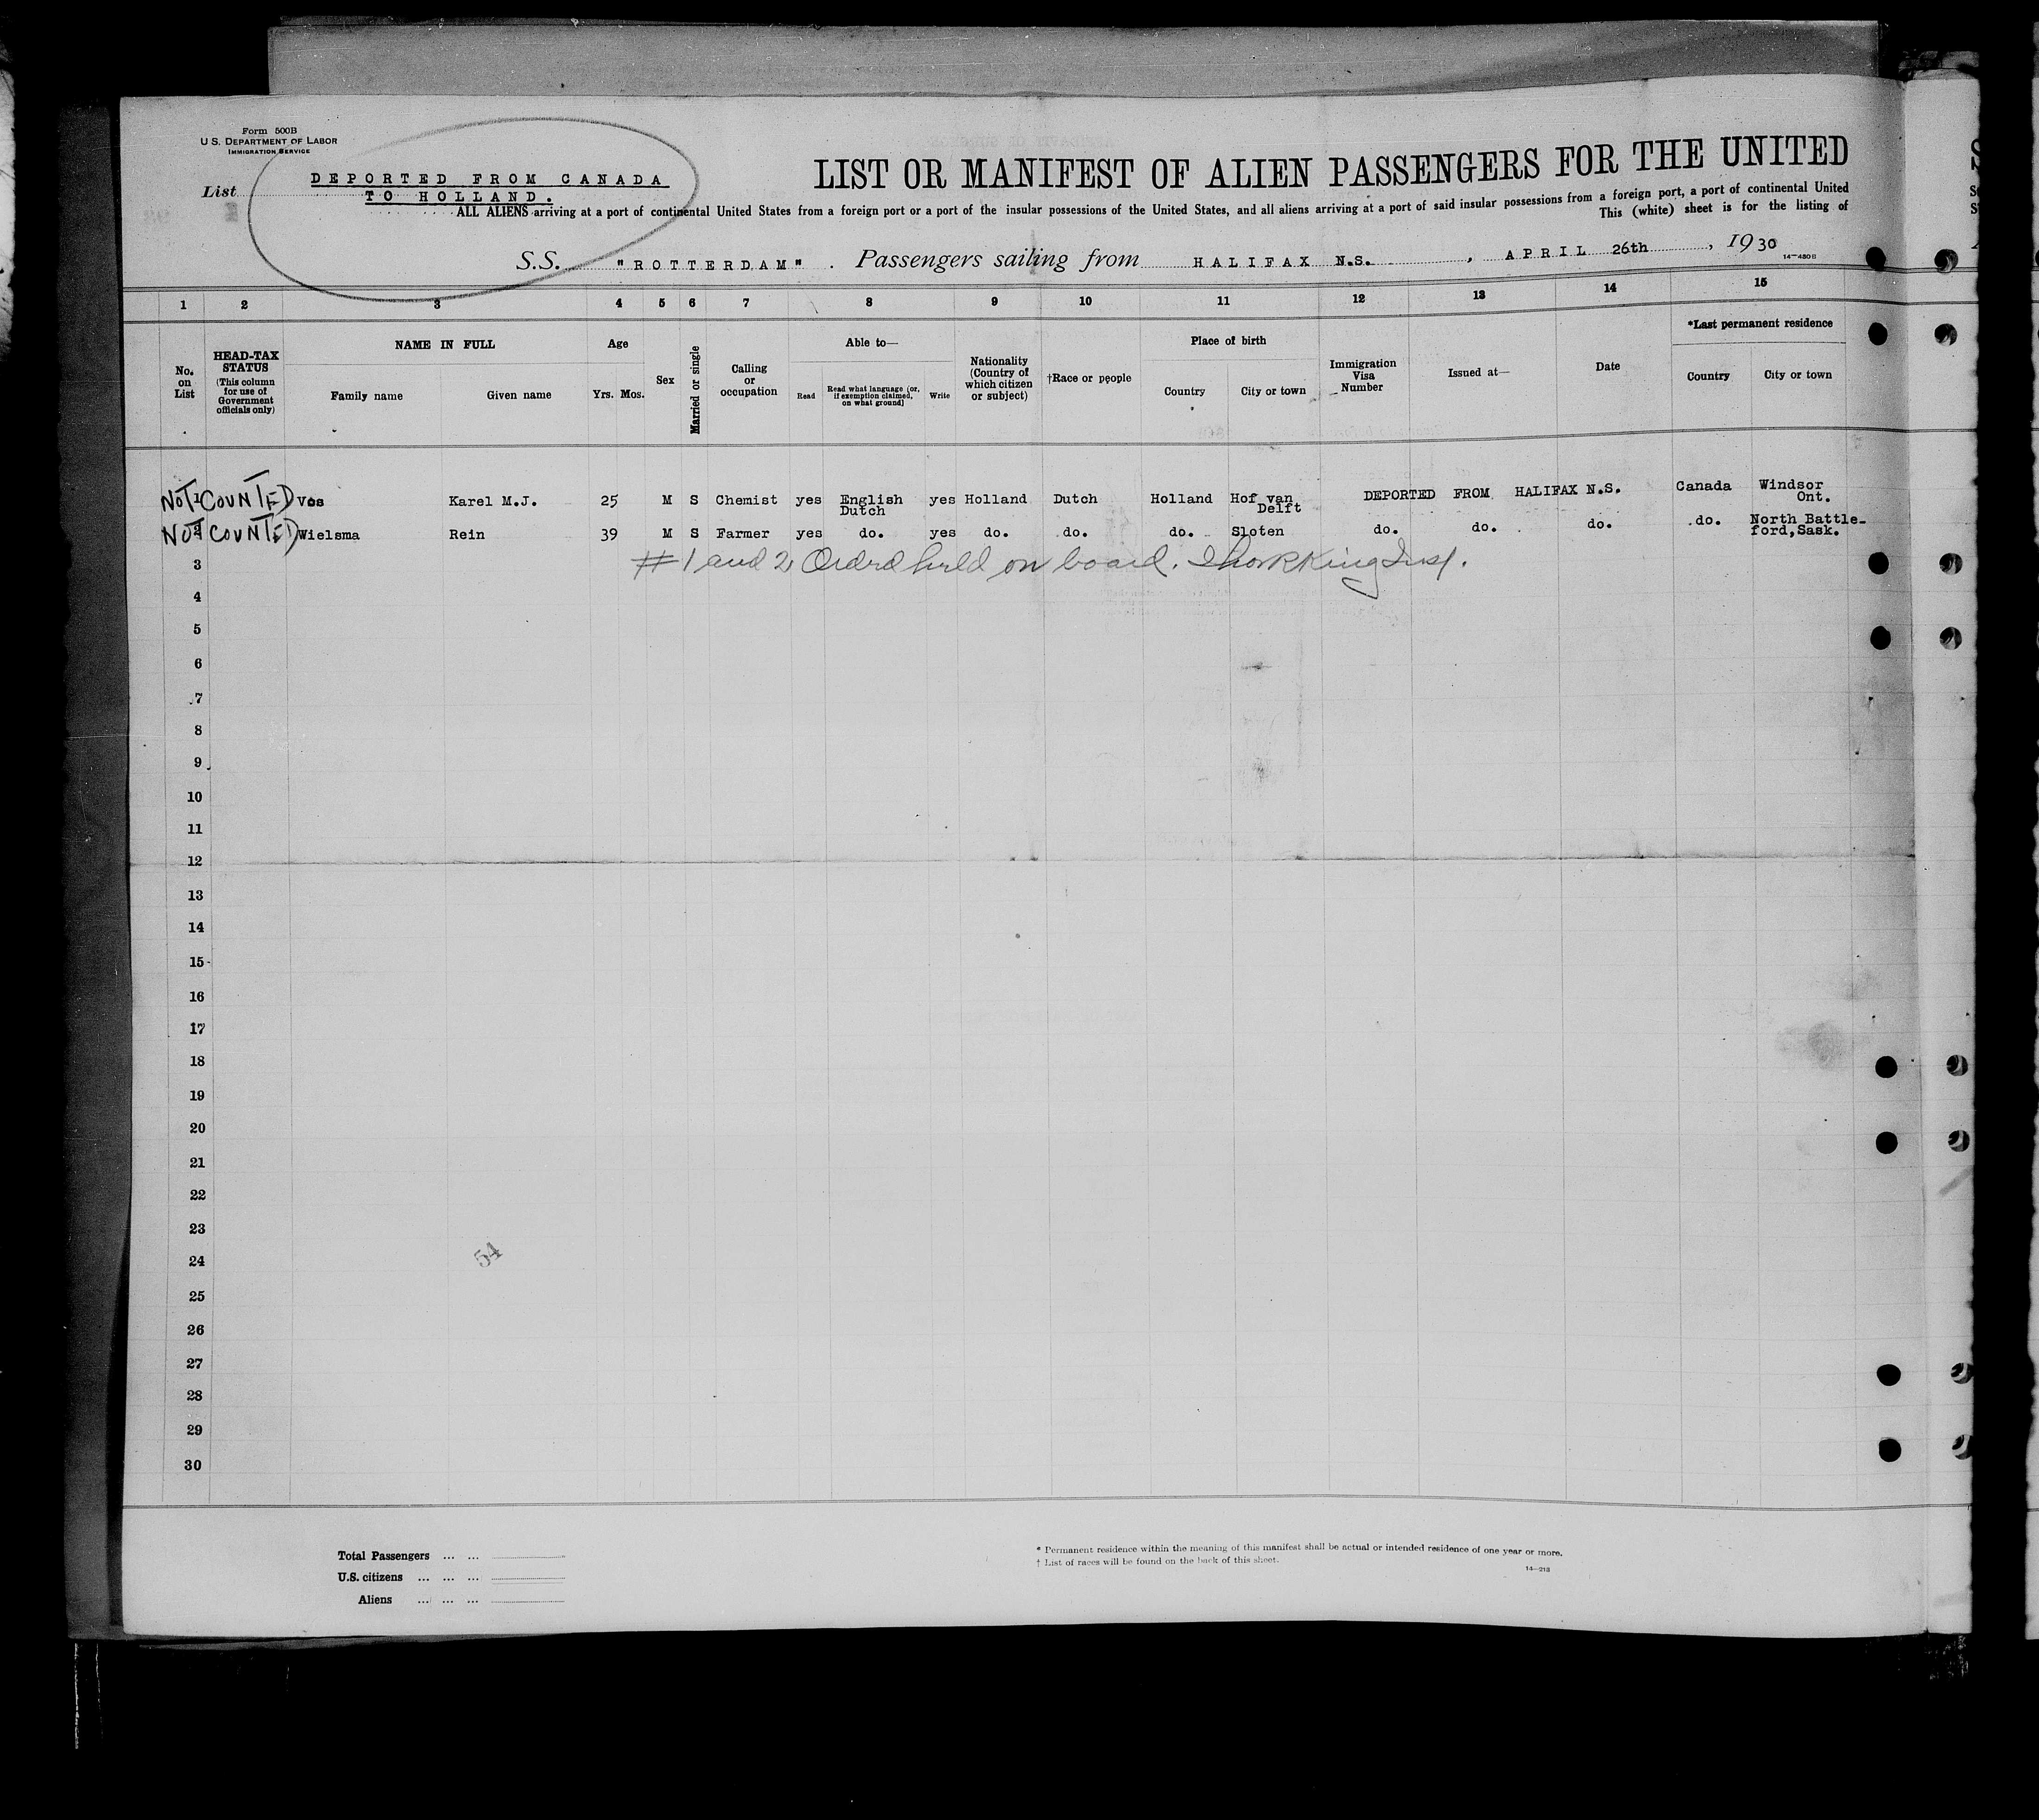 Form 500B
U.S. DEPARTMENT OF LABOR
IMMIGRATION SERVICE
List
DEPORTED FROM CANADA
TO HOLLAND.
LIST OR MANIFEST OF ALIEN PASSENGERS FOR THE UNITED
ALL ALIENS arriving at a port of continental United States from a foreign port or a port of the insular possessions of the United States, and all aliens arriving at a port of said insular possessions from a foreign port, a port of continental United
This (white) sheet is for the listing of
S.S. "ROTTERDAM". Passengers sailing from HALIFAX N.S., APRIL 26th, 1930
14-480B
1 2 3 4 5 6 7 8 9 10 11 12 13 14 15
No. on List
HEAD-TAX STATUS (This column for use of Government officials only)
NAME IN FULL
Family name Given name
Age
Yrs. Mos.
Sex
Married or single
Calling or occupation
Able to—
Read Read what language (or, if exemption claimed, on what ground) Write
Nationality (Country of which citizen or subject)
†Race or people
Place of birth
Country City or town
Immigration Visa Number
Issued at—
Date
*Last permanent residence
Country City or town
NOT 1 COUNTED Vos Karel M.J. 25 M S Chemist yes English Dutch yes Holland Dutch Holland Hof van Delft DEPORTED FROM HALIFAX N.S. Canada Windsor Ont.
NOT 2 COUNTED Wielsma Rein 39 M S Farmer yes do. yes do. do. do. Sloten do. do. do. do. North Battle-ford, Sask.
3 #1 and 2 Ordrd held on board.
4
5
6
7
8
9
10
11
12
13
14
15
16
17
18
19
20
21
22
23
54
24
25
26
27
28
29
30
Total Passengers ... ...
U.S. citizens ... ... ...
Aliens ... ... ...
* Permanent residence within the meaning of this manifest shall be actual or intended residence of one year or more.
† List of races will be found on the back of this sheet.
14-213